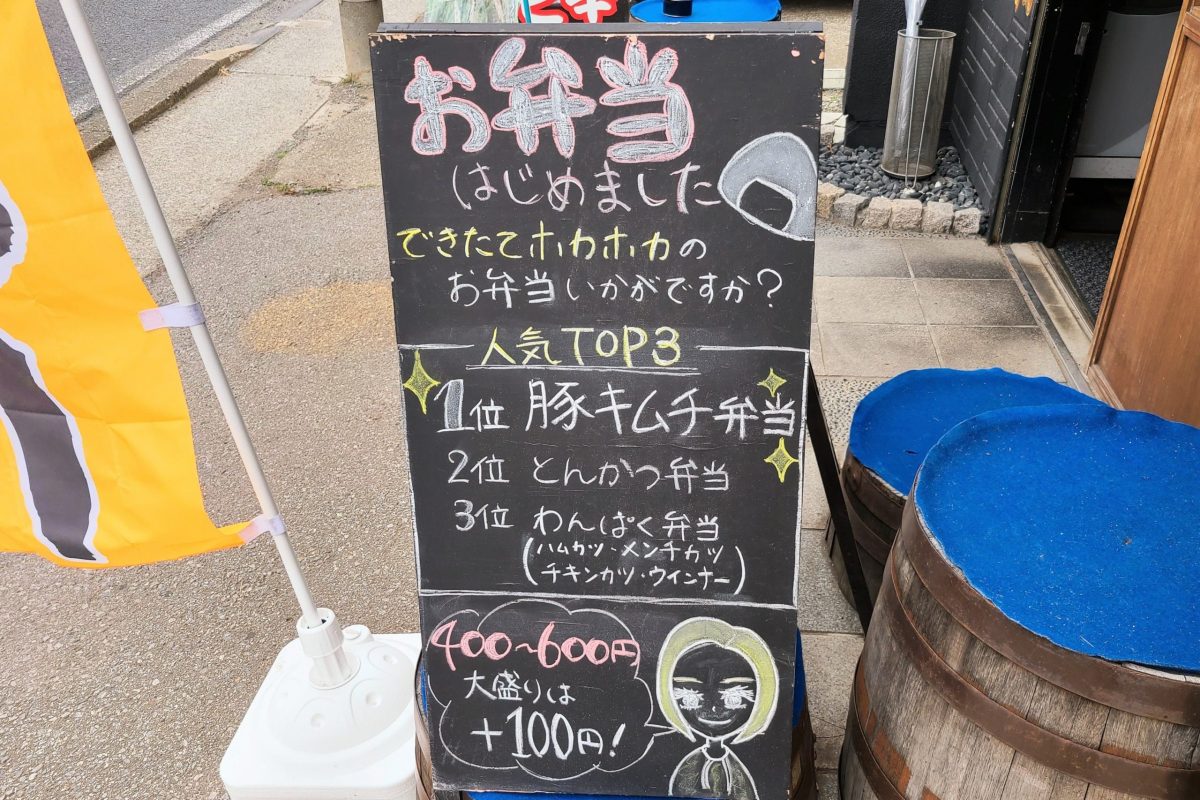 お弁当
はじめました
できたてホカホカの
お弁当いかがですか?
人気TOP3
1位 豚キムチ弁当
2位 とんかつ弁当
3位 わんぱく弁当
(ハムカツ・メンチカツ
チキンカツ・ウインナー)
400~600円
大盛りは
+100円!